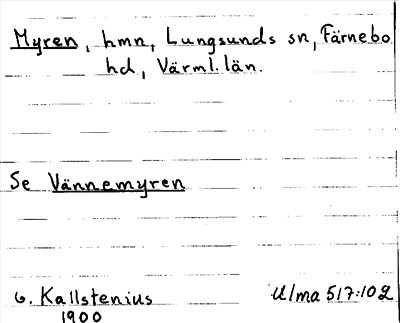 Myren, hmn, Lungsunds sn, Färnebo
hd, Värml. län.
Se Vännemyren
G. Kallstenius
1900
Ulma 517:102